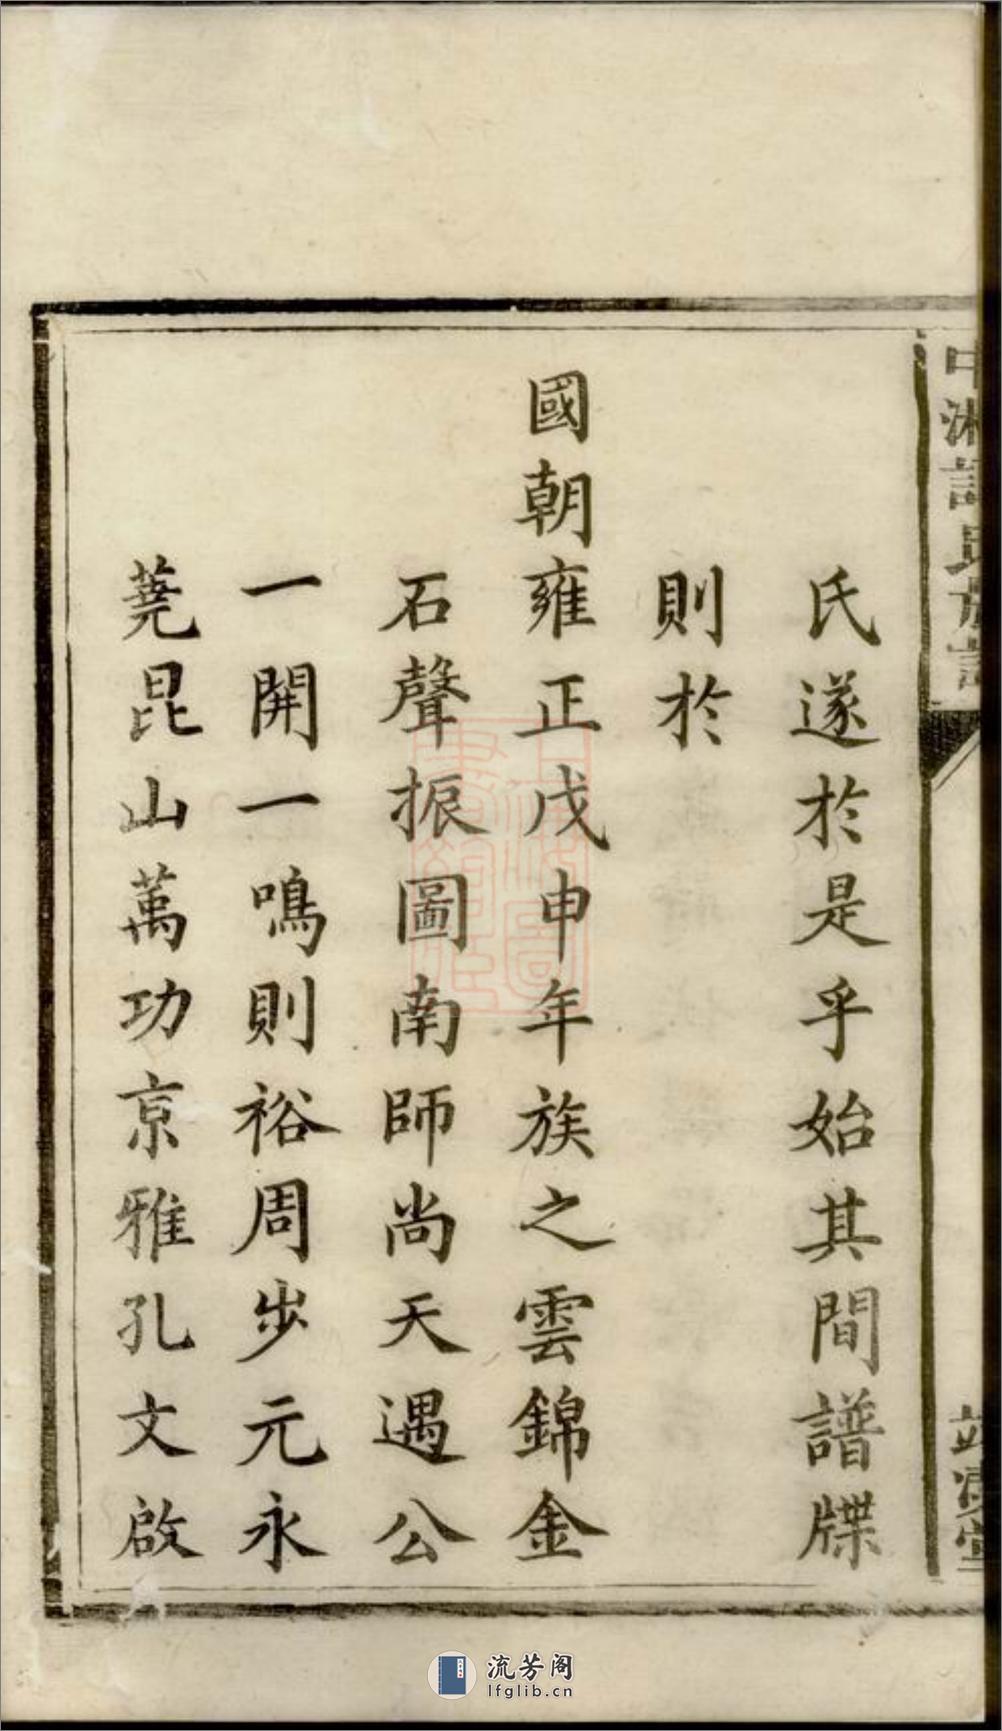 氏遂於是乎始其間譜牒
則於
國朝雍正戊申年族之雲錦金
石聲振圖南師尚天遇公
一開一鳴則裕周步元永
蕘昆山萬功京雅孔文啟
流芳阁
lfglib.cn